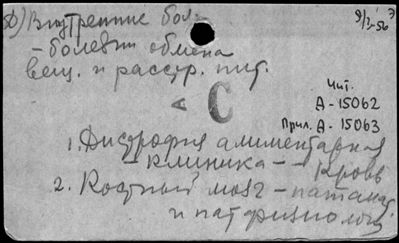 50) Внутренние бол.
9/I-56
- болезни обмена
вещ. и расстр. пит.
< С
Чит.
А-15062
Прил. А-15063
1. Дистрофия алиментарная
- клиника - - кровь
2. Костный мозг - патанат
и патфизиолог